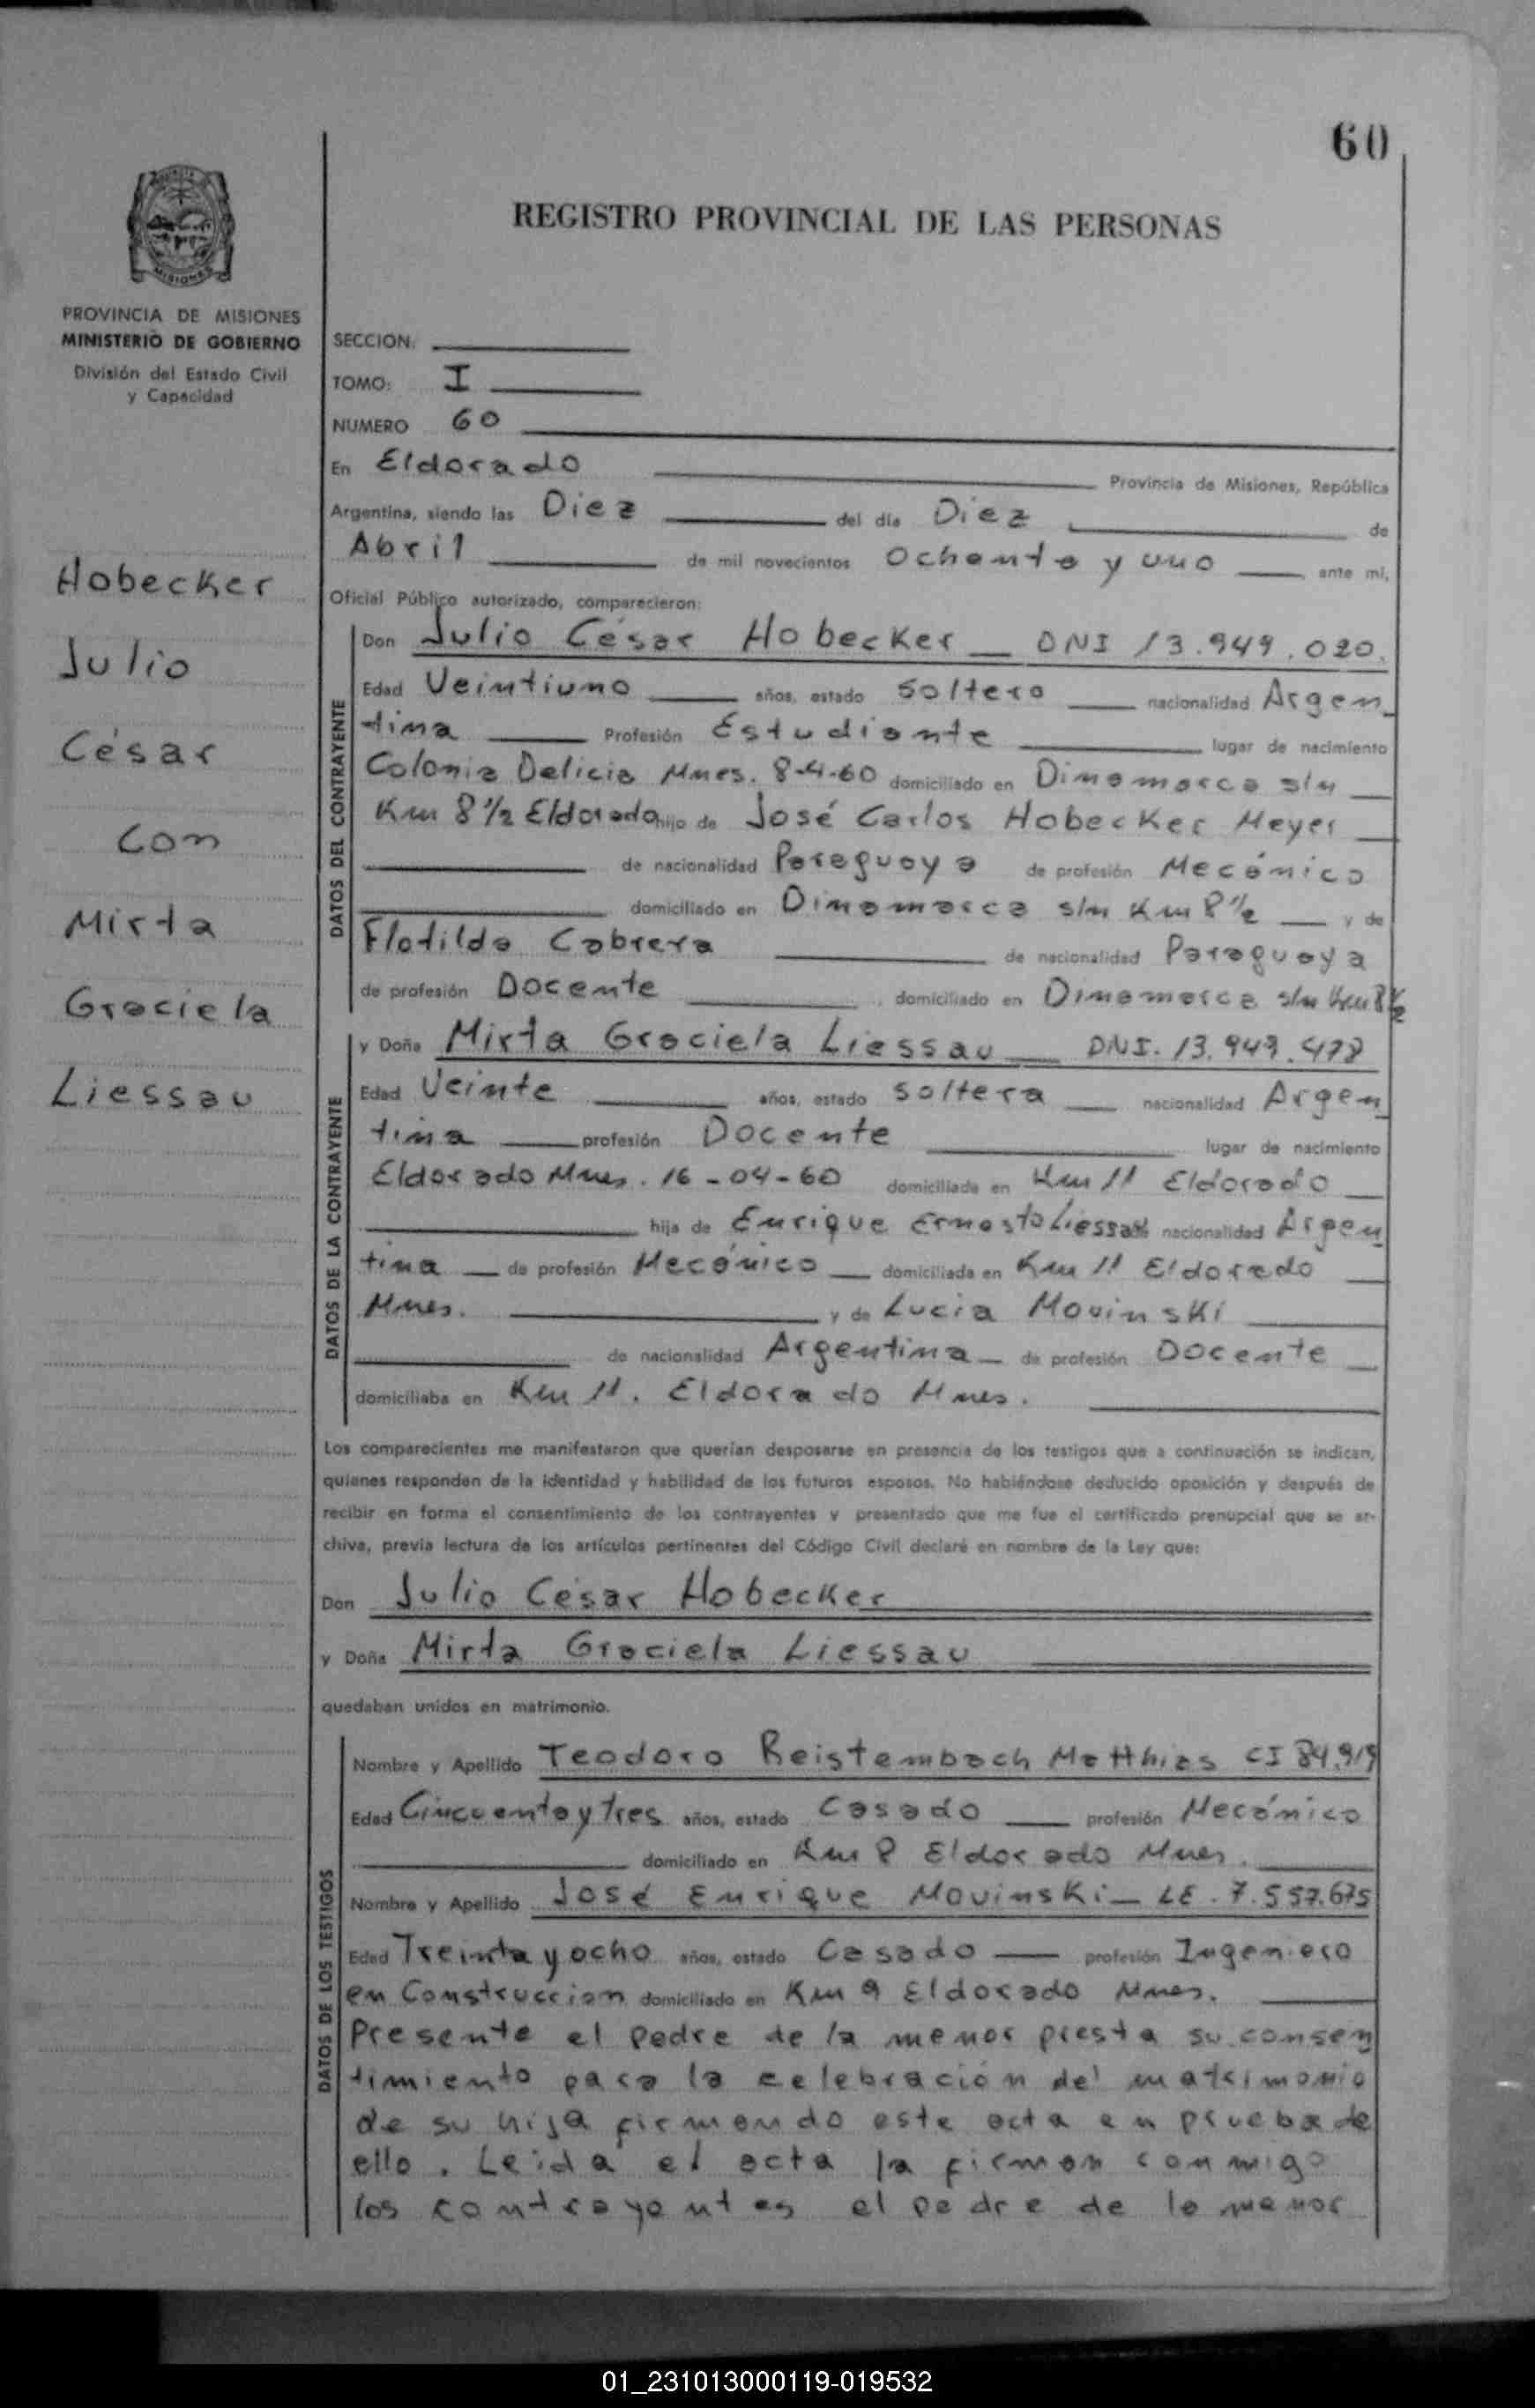 60
REGISTRO PROVINCIAL DE LAS PERSONAS
MISIONES
PROVINCIA DE MISIONES
MINISTERIO DE GOBIERNO
División del Estado Civil
y Capacidad
Hobecker
Julio
César
Con
Mirta
Graciela
Liessau
SECCION:
TOMO: I
NUMERO 60
En Eldorado Provincia de Misiones, República
Argentina, siendo las Diez del día Diez de
Abril de mil novecientos Ochenta y uno ante mí,
Oficial Público autorizado, comparecieron:
DATOS DEL CONTRAYENTE
Don Julio César Hobecker DNI 13.949.020.
Edad Veintiuno años, estado Soltero nacionalidad Argen
tina Profesión Estudiante lugar de nacimiento
Colonia Delicia Mnes. 8-4-60 domiciliado en Dinamarca s/n
Km 8 1/2 Eldorado hijo de José Carlos Hobecker Meyer
de nacionalidad Paraguaya de profesión Mecánico
domiciliado en Dinamarca s/n Km 8 1/2 y de
Flotilda Cabrera de nacionalidad Paraguaya
de profesión Docente domiciliado en Dinamarca s/n Km 8 1/2
DATOS DE LA CONTRAYENTE
y Doña Mirta Graciela Liessau DNI. 13.949.478
Edad Veinte años, estado Soltera nacionalidad Argen
tina profesión Docente lugar de nacimiento
Eldorado Mnes. 16-04-60 domiciliada en Km 11 Eldorado
hija de Enrique Ernesto Liessau nacionalidad Argen
tina de profesión Mecánico domiciliada en Km 11 Eldorado
Mnes. y de Lucia Movinski
de nacionalidad Argentina de profesión Docente
domiciliaba en Km 11. Eldorado Mnes.
Los comparecientes me manifestaron que querían desposarse en presencia de los testigos que a continuación se indican,
quienes responden de la identidad y habilidad de los futuros esposos. No habiéndose deducido oposición y después de
recibir en forma el consentimiento de los contrayentes y presentado que me fue el certificado prenupcial que se ar-
chiva, previa lectura de los artículos pertinentes del Código Civil declaré en nombre de la Ley que:
Don Julio César Hobecker
y Doña Mirta Graciela Liessau
quedaban unidos en matrimonio.
DATOS DE LOS TESTIGOS
Nombre y Apellido Teodoro Reistembach Matthias CI 84.919
Edad Cincuenta y tres años, estado Casado profesión Mecánico
domiciliado en Km 8 Eldorado Mnes.
Nombre y Apellido José Enrique Movinski LE. 7.557.675
Edad Treinta y ocho años, estado Casado profesión Ingeniero
en Construccion domiciliado en Km 9 Eldorado Mnes.
Presente el padre de la menor presta su consen
timiento para la celebración del matrimonio
de su hija firmando este acta en prueba de
ello. Leida el acta la firman conmigo
los contrayentes el padre de la menor
01_231013000119-019532